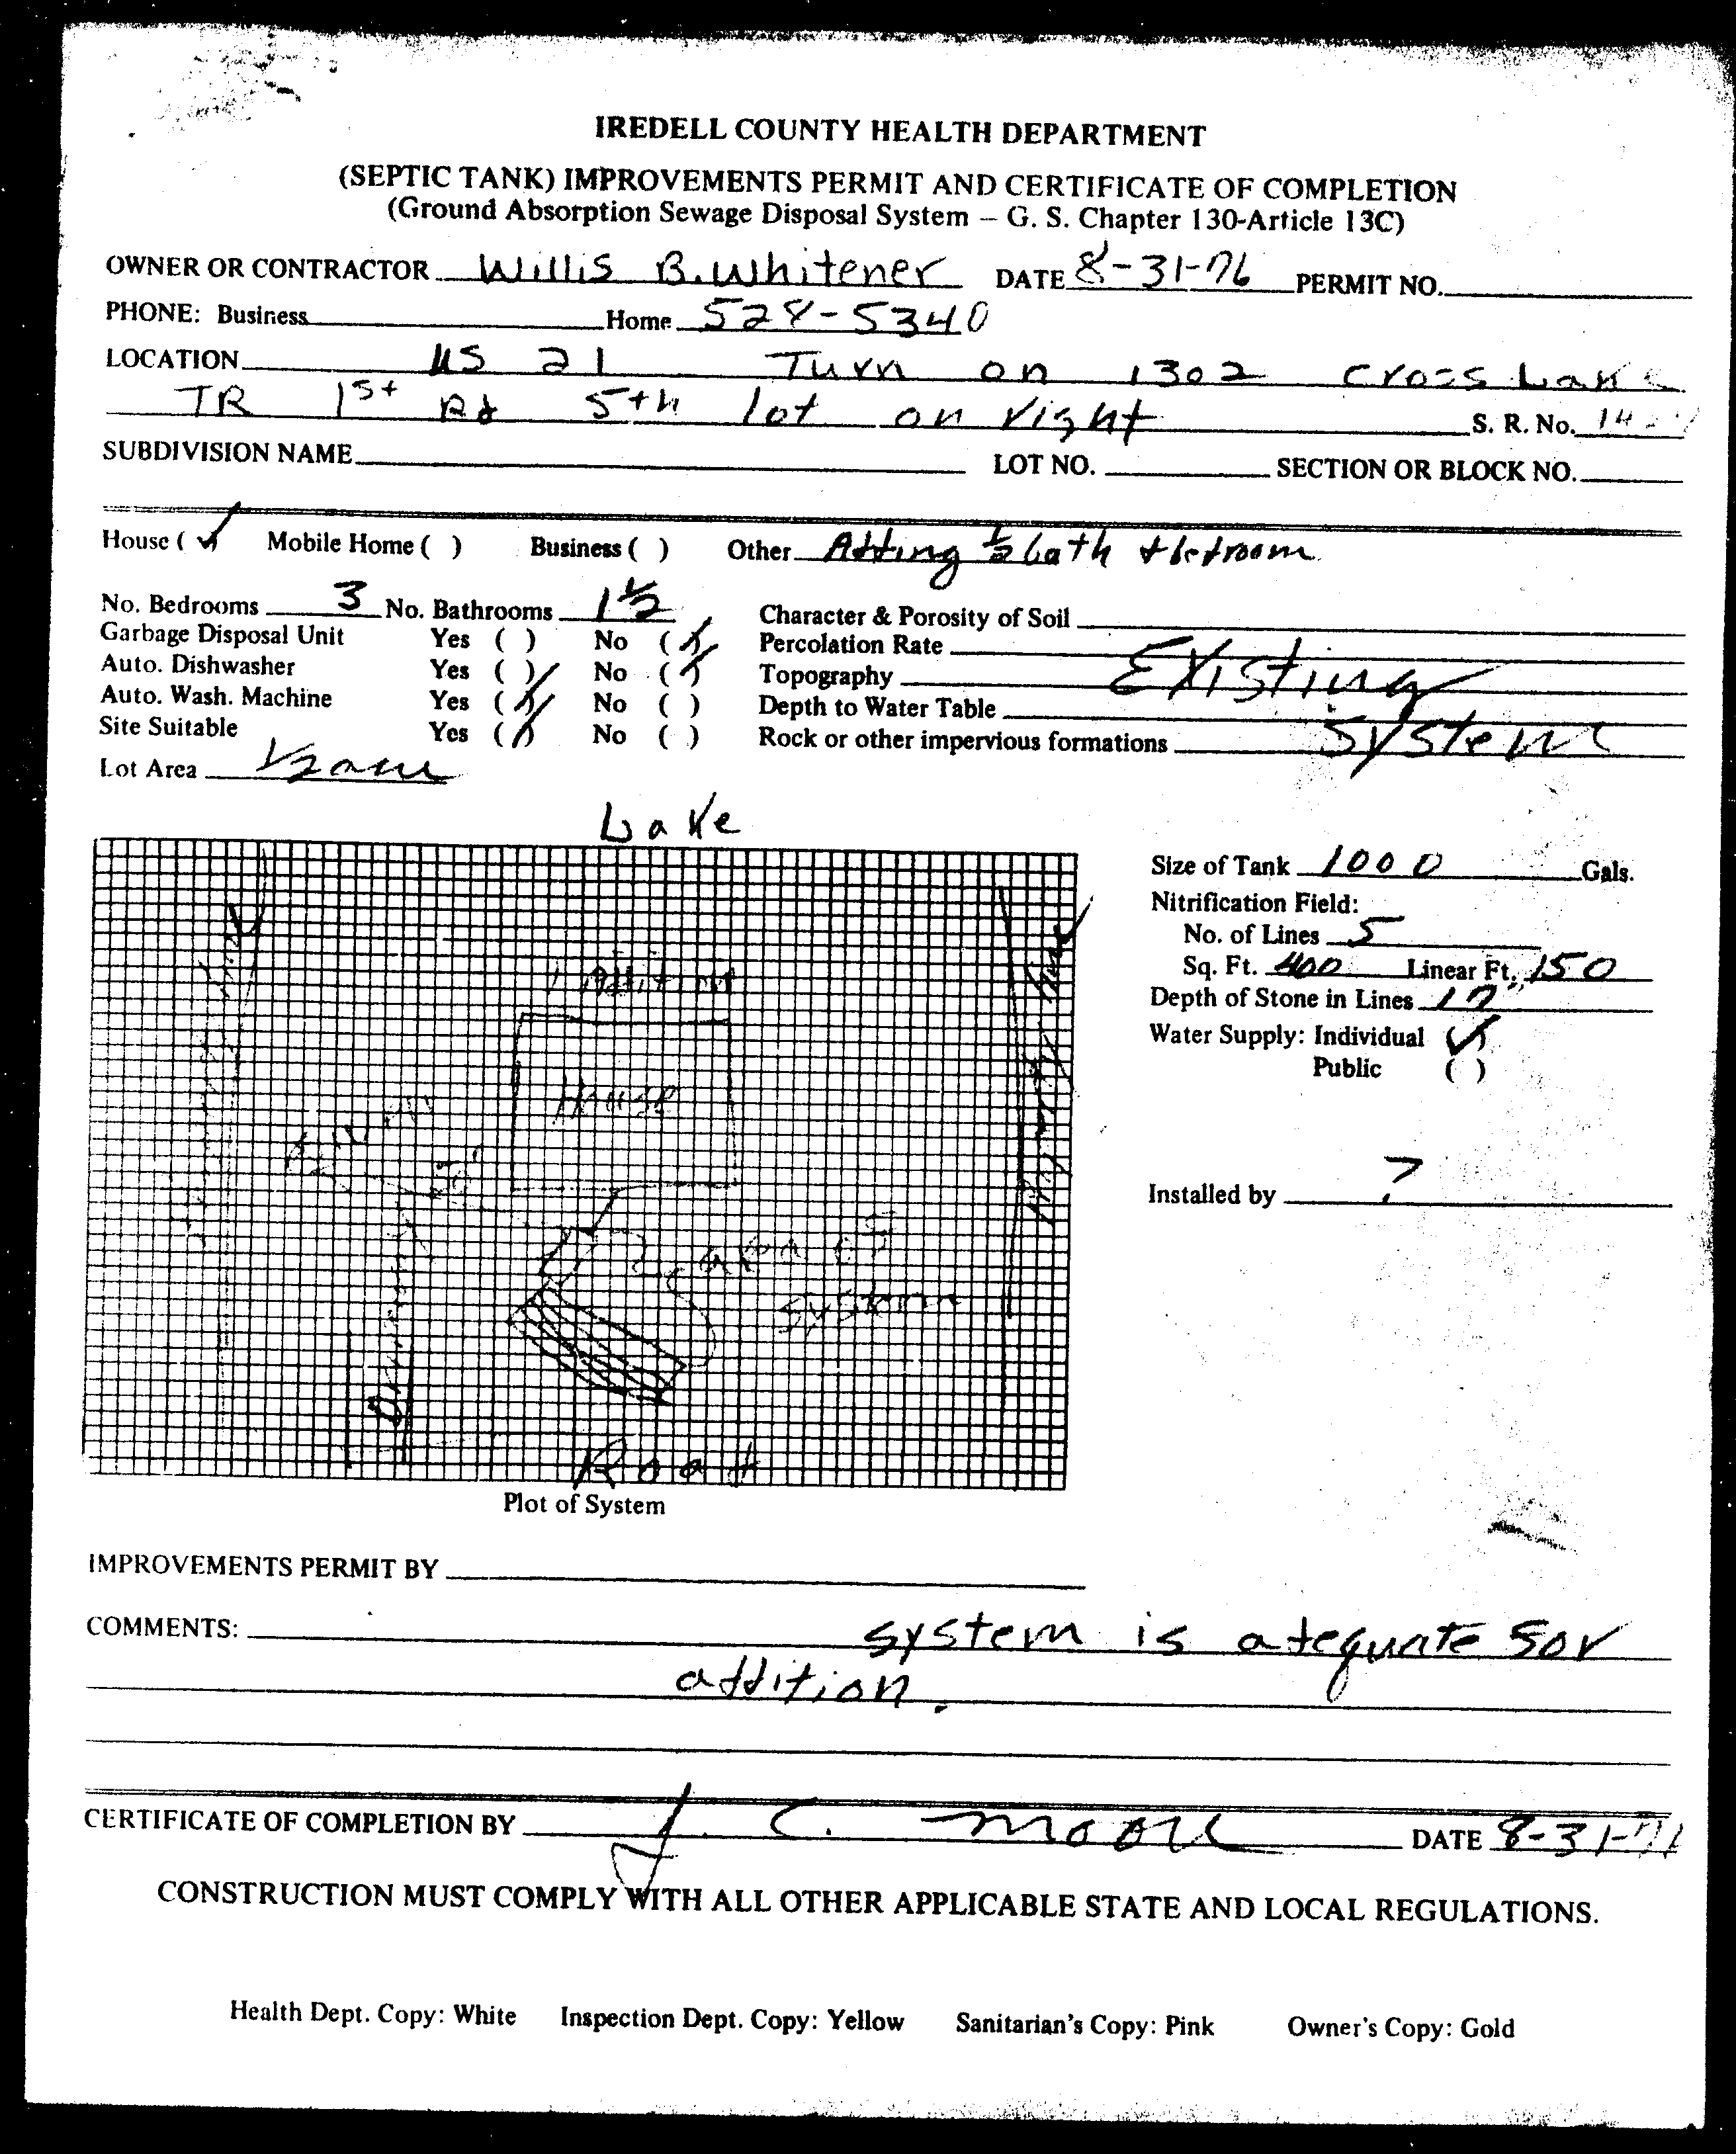 IREDELL COUNTY HEALTH DEPARTMENT
(SEPTIC TANK) IMPROVEMENTS PERMIT AND CERTIFICATE OF COMPLETION
(Ground Absorption Sewage Disposal System – G. S. Chapter 130-Article 13C)
OWNER OR CONTRACTOR Willis B. Whitener DATE 8-31-76 PERMIT NO.
PHONE: Business Home 528-5340
LOCATION US 21 Turn on 1302 cross Lake
TR 1st Rd 5th lot on right S. R. No.
SUBDIVISION NAME LOT NO. SECTION OR BLOCK NO.
House (✓) Mobile Home ( ) Business ( ) Other Adding ½ bath + bedroom
No. Bedrooms 3 No. Bathrooms 1½ Character & Porosity of Soil
Garbage Disposal Unit Yes ( ) No (✓) Percolation Rate
Auto. Dishwasher Yes ( ) No (✓) Topography Existing
Auto. Wash. Machine Yes (✓) No ( ) Depth to Water Table
Site Suitable Yes (✓) No ( ) Rock or other impervious formations System
Lot Area ½ acre
Lake
Size of Tank 1000 Gals.
Nitrification Field:
No. of Lines 5
Sq. Ft. 400 Linear Ft. 150
Depth of Stone in Lines 12"
Water Supply: Individual (✓)
Public ( )
Installed by ?
Addition
House
area of
system
Road
Plot of System
IMPROVEMENTS PERMIT BY
COMMENTS: system is adequate for
addition.
CERTIFICATE OF COMPLETION BY J. C. Moore DATE 8-31-76
CONSTRUCTION MUST COMPLY WITH ALL OTHER APPLICABLE STATE AND LOCAL REGULATIONS.
Health Dept. Copy: White Inspection Dept. Copy: Yellow Sanitarian's Copy: Pink Owner's Copy: Gold